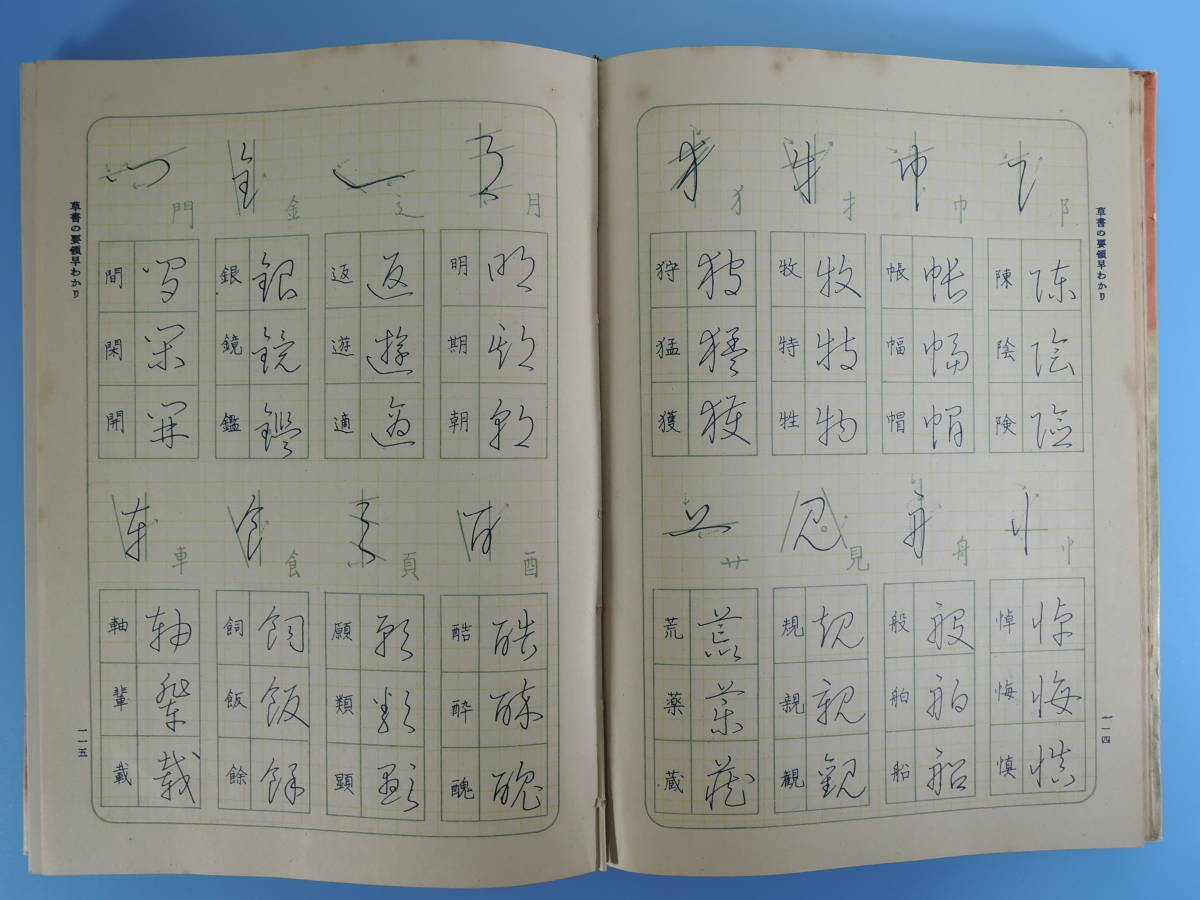 草書の要領早わかり
阝
陳
陰
険
巾
帳
幅
帽
扌
牧
特
牲
犭
狩
猛
獲
忄
悼
悔
慎
舟
般
舶
船
見
規
親
観
艹
荒
薬
蔵
一一四
月
明
期
朝
辶
返
遊
適
金
銀
鏡
鑑
門
間
閑
開
酉
酷
酔
醜
頁
願
類
顕
食
飼
飯
餘
車
軸
輩
載
草書の要領早わかり
一一五